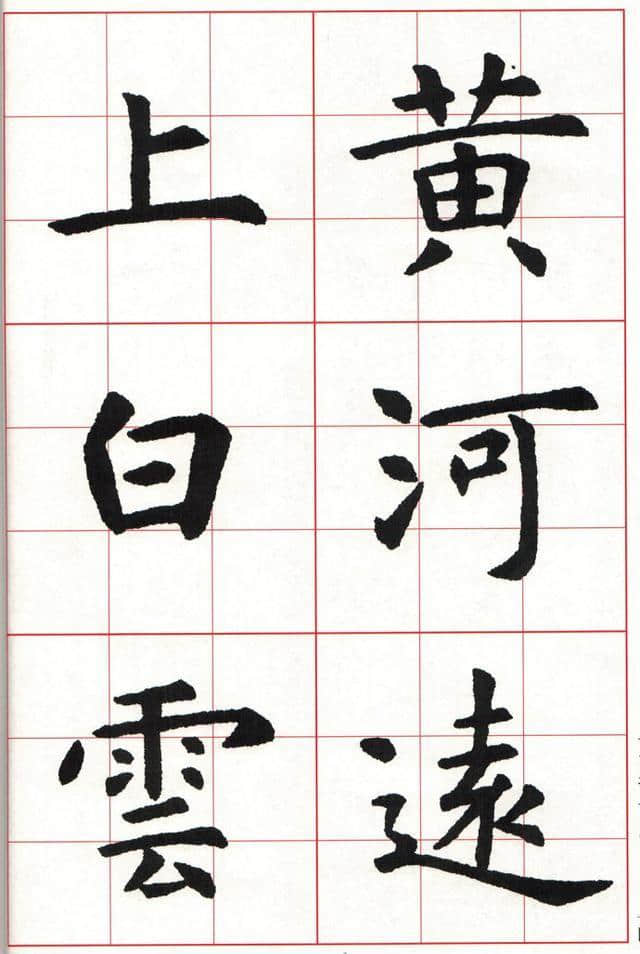 黃河遠
上白雲